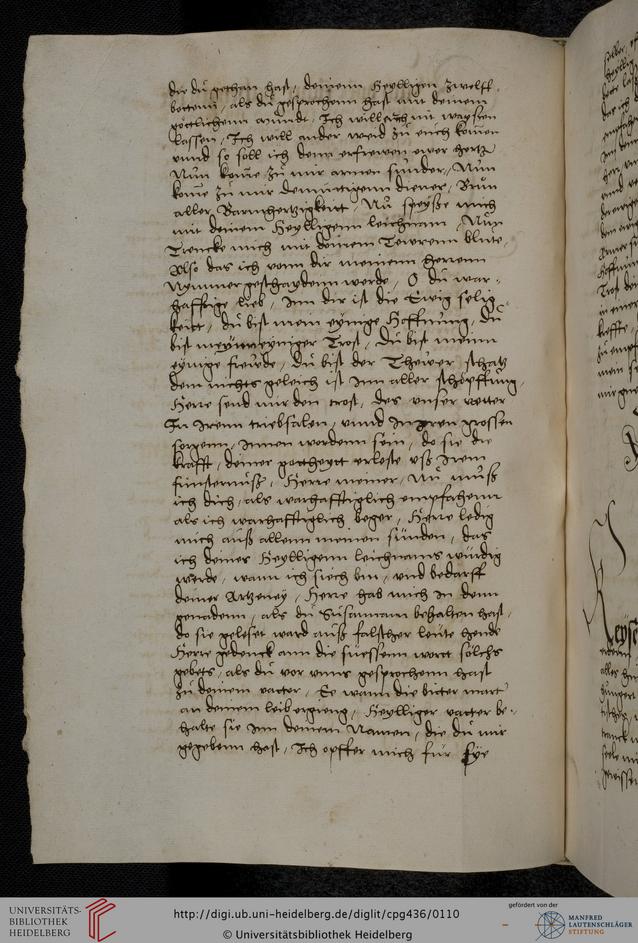 die du gethan hast, deinenn heylligen zwelff
botten, als du gesprochenn hast mit deinem
göttlichenn mundt, Ich will euch nit waysen
lassen, Ich will ander weid zu euch komen
unnd so soll ich denn erfrewen ewer hertz
Nun kome zu mir armen sunder, Nun
kome zu mir demuttigenn diener, Brun
aller Barmhertzigkeitt, Nu speyße mich
mit deinem heylligenn leichnam, Nun
Trencke mich mit deinem Tewrenn blute,
Also das ich vonn dir meinem herrenn
Nymmer geschaydenn werde, O du war-
hafftige lieb, Inn dir ist die Ewig selig-
keitt, du bist mein eynige Hoffnung, du
bist mein eyniger Trost, du bist meinn
eynige frewde, du bist der Thewer schatz
dem nichts geleich ist Inn aller schöpffung,
Herre send mir den trost, des unser vetter
In irenn triebsalen, unnd In iren grossen
sorgenn, Innen wordenn sein, do sie die
krafft, deiner gottheytt erloste uß irem
finsternuß, Herre meiner, Nu muß
ich dich, als warhafftiglich empfahenn
als ich warhafftiglich beger, Herre ledig
mich auß allenn meinen sunden, das
ich deines heylligenn leichnams würdig
werde, wann ich siech bin, und bedarff
deiner Artzeney, Herre hab mich In denn
genadenn, als du Susannam behalten hast,
do sie geloset ward auß falscher leute hende
Herre gedenck ann die suessenn wort solchs
gebets, als du vor unns gesprochenn hast
zu deinem vatter, Ee wann die bitter mart
an deinem leib ergieng, Heylliger vatter be-
halte sie Inn deinem Namen, die du mir
gegebenn hast, Ich opffer mich für sye
UNIVERSITÄTS-
BIBLIOTHEK
HEIDELBERG
http://digi.ub.uni-heidelberg.de/diglit/cpg436/0110
© Universitätsbibliothek Heidelberg
gefördert von der
MANFRED
LAUTENSCHLÄGER
STIFTUNG